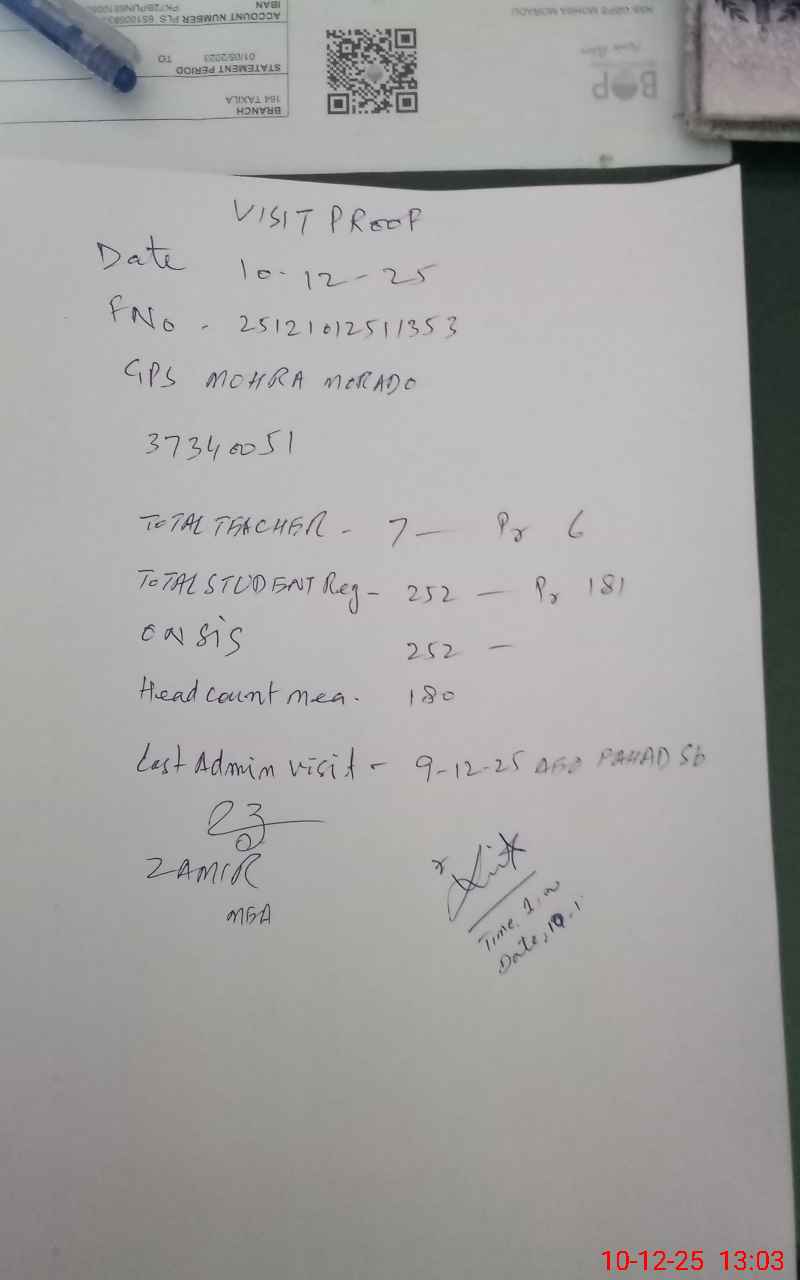 BRANCH
164 TAXILA
STATEMENT PERIOD
01/05/2023 TO
ACCOUNT NUMBER PLS
IBAN
BOP
VISIT PROOF
Date 10-12-25
FNo - 25121012511353
GPS MOHRA MORADO
37340051
TOTAL TEACHER - 7 — Pr 6
TOTAL STUDENT Reg - 252 — Pr 181
ON SIS 252 —
Head count mea. 180
Last Admin visit - 9-12-25 AEO
ZAMIR
MEA
Time, 1,
Date, 10, 1
10-12-25 13:03